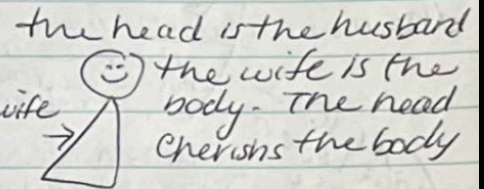 the head is the husband
the wife is the
wife body. The head
cherishs the body